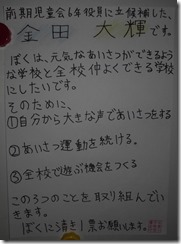 前期児童会6年役員に立候補した、
金田 大輝です。
ぼくは、元気なあいさつができるよう
な学校と全校仲よくできる学校
にしたいです。
そのために、
①自分から大きな声であいさつをする
②あいさつ運動を続ける。
③全校で遊ぶ機会をつくる
この3つのことを取り組んでい
きます。
ぼくに清き1票お願いします。